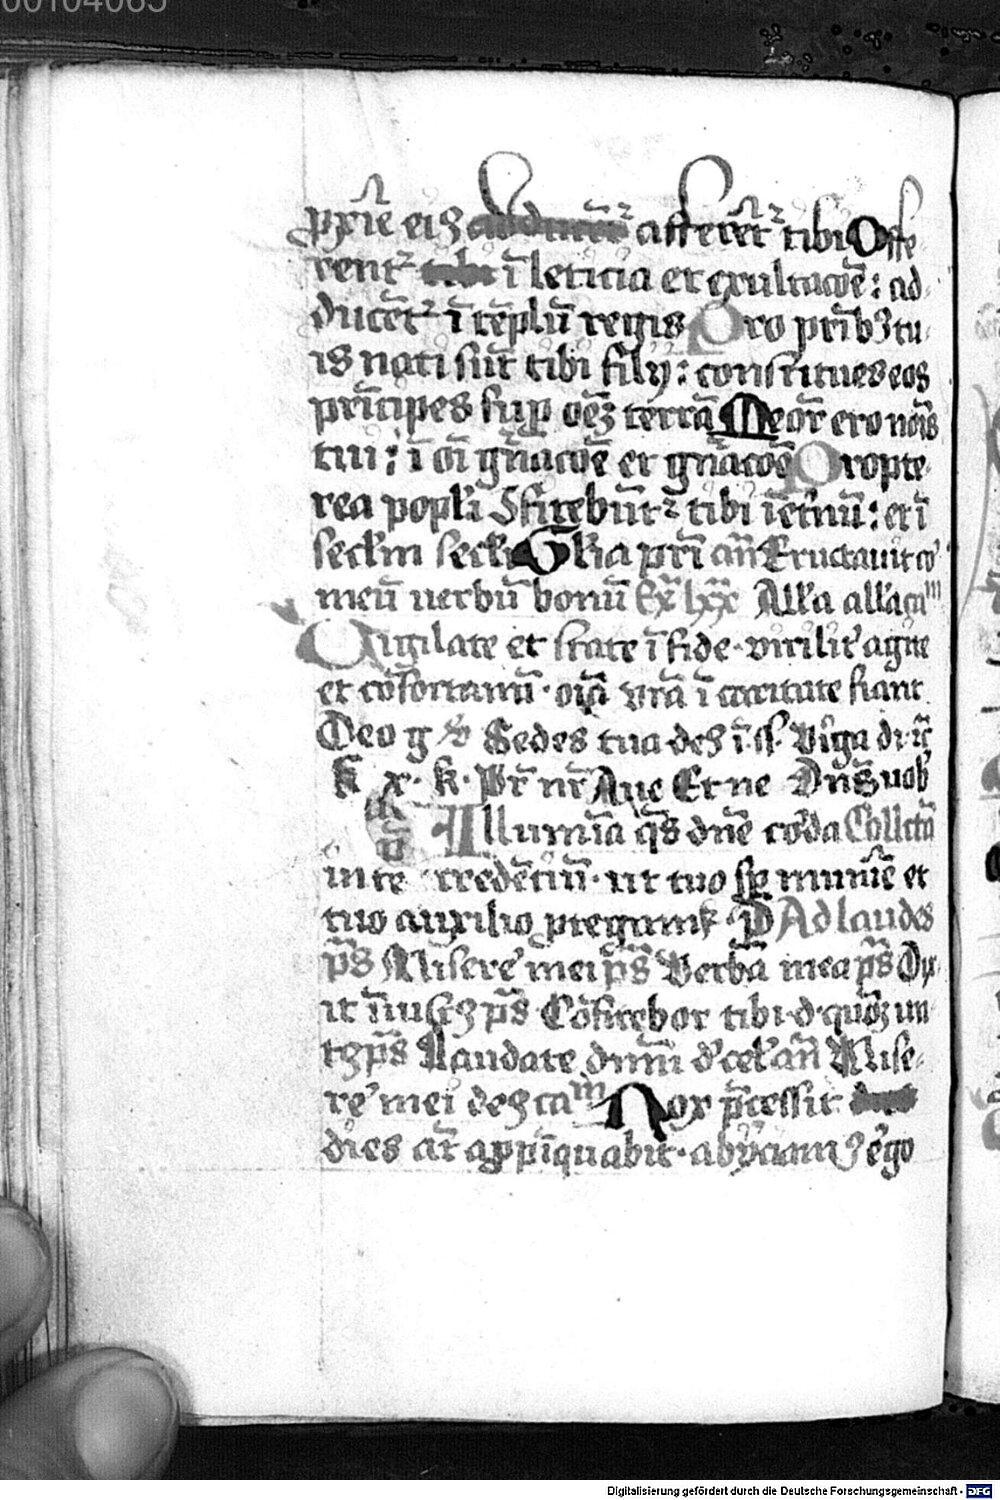 00104065
pxīe eiꝰ afferēt᷑ tibi Offe-
rent᷑ ī leticia et exultacōe : ad-
ducēt᷑ ī tēplū regis Pro prībꝫ tu-
is nati sūt tibi filij : constitues eos
prīcipes suꝑ oēꝫ terrā Meōr ero noīs
tui : ī oī gn̄acōe et gn̄acōe Propte-
rea popl'i ꝯfitebūt᷑ tibi īet'nū : et ī
secl'm secl'i Gl'ia pr̄i an̄ Eructauit co᷑
meū uerbū bonū All'a all'a cam
Uigilate et state ī fide · virilit' agite
et cōfortamī · oīa vr̄a ī caritate fiant
Deo g Sedes tua deꝰ ī s. Virga di
k x · k · Pr̄ nr̄ Aue Et ne Dn̄s uob'
Illumīa q̄s dn̄e corda Collcta
in te credētiū · ut tuo munīe et
tuo auxilio ꝓtegant᷑ · P Ad laudes
p̄s Misere᷑ mei p̄s Verba mea p̄s Dix-
it īiustꝰ p̄s Cōfitebor tibi · d · quōꝫ
p̄s Laudate dn̄m d' cel' an̄ Mise-
re᷑ mei deꝰ cam Nox p̄cessit
dies at̄ appīquabit · abijciamꝰ ergo
Digitalisierung gefördert durch die Deutsche Forschungsgemeinschaft - DFG